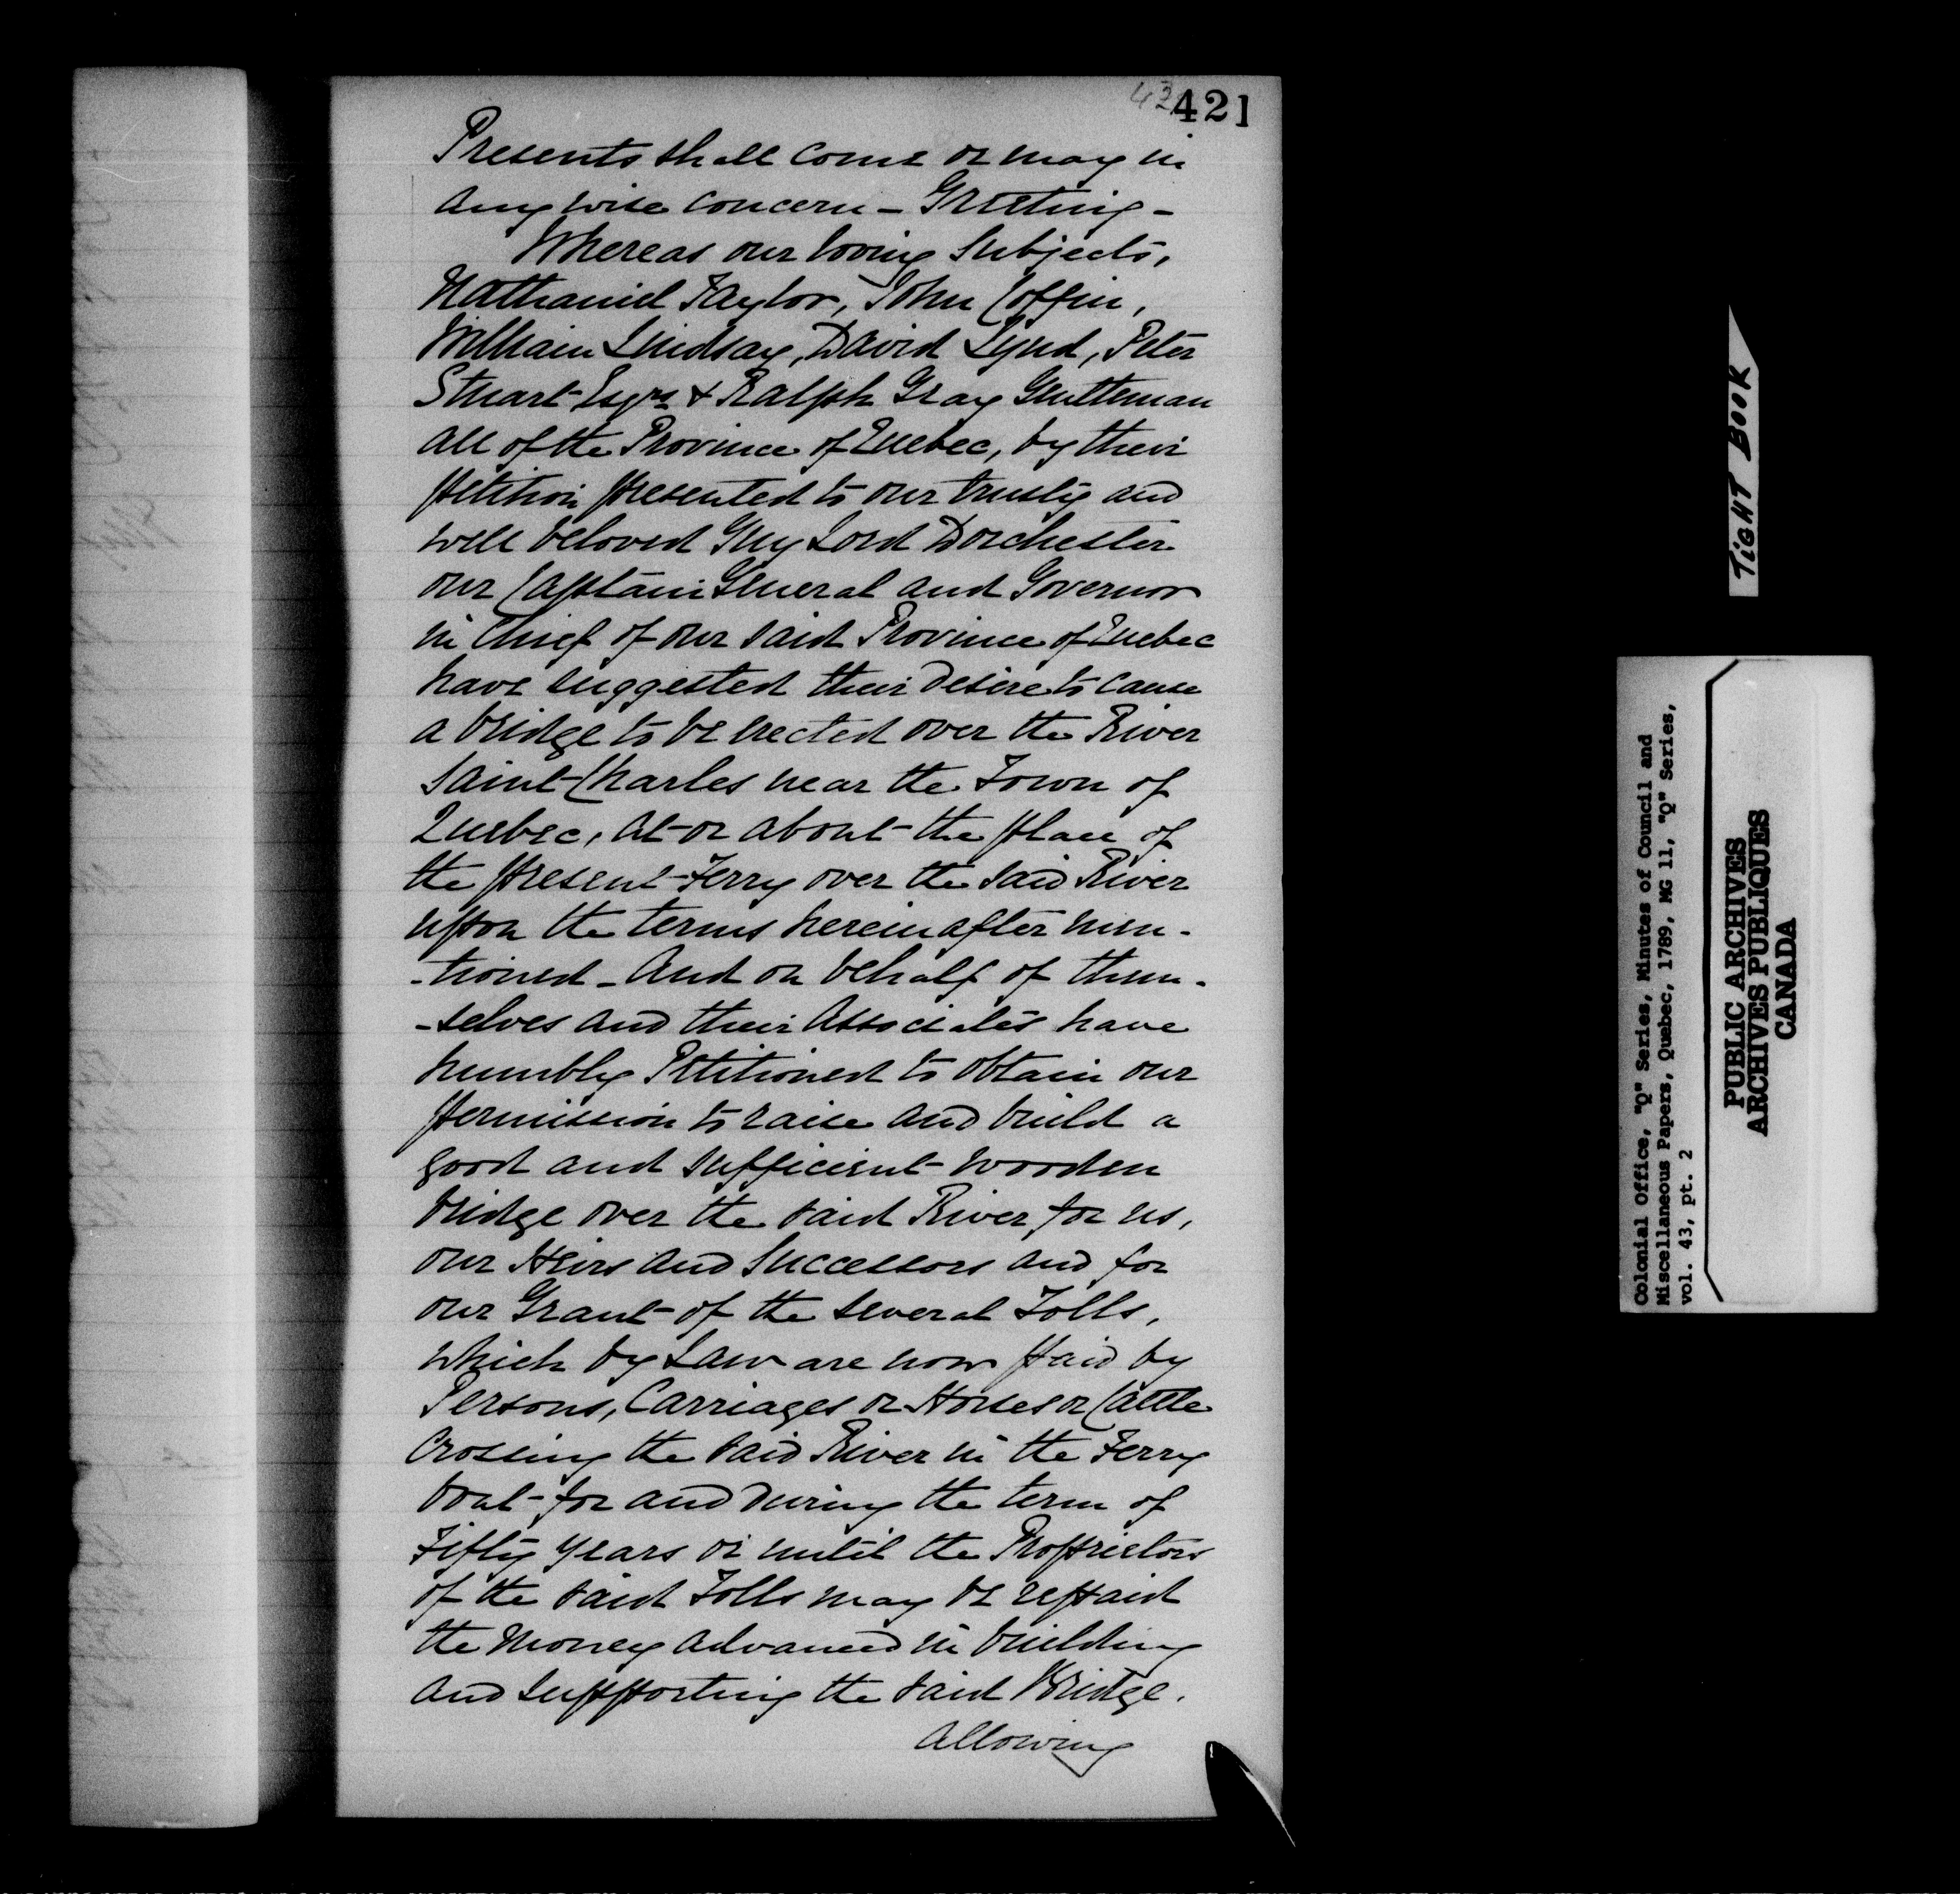 421
Presents shall come or may in
any wise concern - Greeting -
Whereas our loving Subjects,
Nathaniel Taylor, John Coffin,
William Lindsay, David Lynd, Peter
Stuart Esqrs & Ralph Gray Gentleman
all of the Province of Quebec, by their
petition presented to our trusty and
well beloved Guy Lord Dorchester
our Captain General and Governor
in Chief of our said Province of Quebec
have suggested their desire to cause
a bridge to be erected over the River
Saint Charles near the Town of
Quebec, at or about the place of
the present Ferry over the said River
upon the terms hereinafter men-
-tioned - And on behalf of them-
-selves and their Associates have
humbly Petitioned to obtain our
permission to raise and build a
good and sufficient wooden
bridge over the said River for us,
our Heirs and Successors and for
our Grant of the several Tolls,
which by Law are now paid by
Persons, Carriages or Horses or Cattle
crossing the said River in the Ferry
boat for and during the term of
Fifty years or until the Proprietors
of the said Tolls may be repaid
the Money advanced in building
and supporting the said Bridge.
Allowing
TIGHT BOOK
Colonial Office, "Q" Series, Minutes of Council and
Miscellaneous Papers, Quebec, 1789, MG 11, "Q" Series,
vol. 43, pt. 2
PUBLIC ARCHIVES
ARCHIVES PUBLIQUES
CANADA